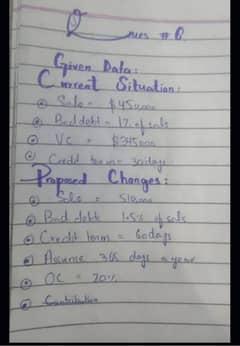 Ques # 6
Given Data:
Current Situation:
Sale = $450,000
Bad debt = 1% of sale
VC = $345000
Credit term = 30days
Proposed Changes:
Sale = 510,000
Bad debt 1.5% of sale
Credit term = 60days
Assume 365 days a year
OC = 20%
Contribution